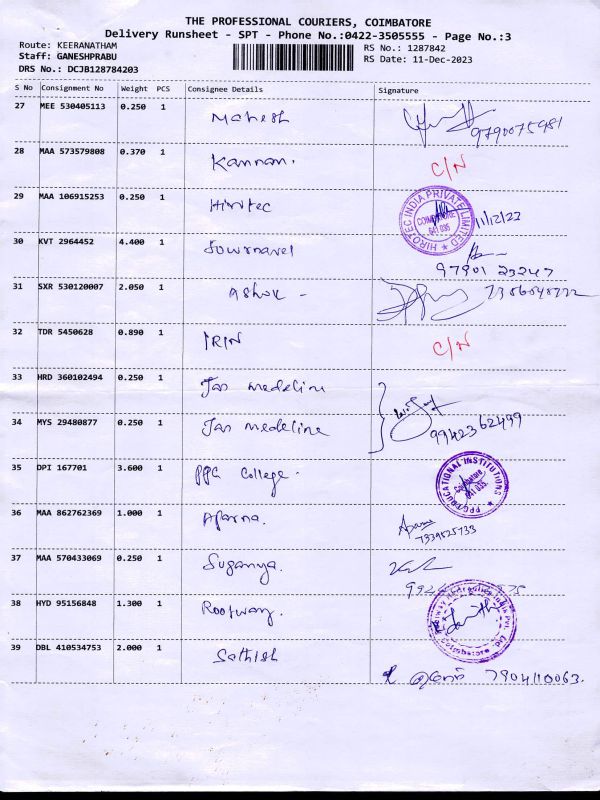 THE PROFESSIONAL COURIERS, COIMBATORE
Delivery Runsheet - SPT - Phone No.:0422-3505555 - Page No.:3
Route: KEERANATHAM
RS No.: 1287842
Staff: GANESHPRABU
RS Date: 11-Dec-2023
DRS No.: DCJB128784203
S No Consignment No Weight PCS Consignee Details Signature
27 MEE 530405113 0.250 1 Mahesh 9790075981
28 MAA 573579808 0.370 1 Kannan. C/N
29 MAA 106915253 0.250 1 Hirotec HIROTEC INDIA PRIVATE LIMITED COIMBATORE 641 035 11/12/23
30 KVT 2964452 4.400 1 97901 23247
31 SXR 530120007 2.050 1 Ashok -
32 TDR 5450628 0.890 1 IRIN C/N
33 HRD 360102494 0.250 1 Jas medeline
34 MYS 29480877 0.250 1 Jas medeline 9942362499
35 DPI 167701 3.600 1 PPG College. PPG EDUCATIONAL INSTITUTIONS Coimbatore 641 035
36 MAA 862762369 1.000 1 Aparna. Aparna 7339525733
37 MAA 570433069 0.250 1 Suganya.
38 HYD 95156848 1.300 1 Rootway. Coimbatore
39 DBL 410534753 2.000 1 Sathish 7904110063.